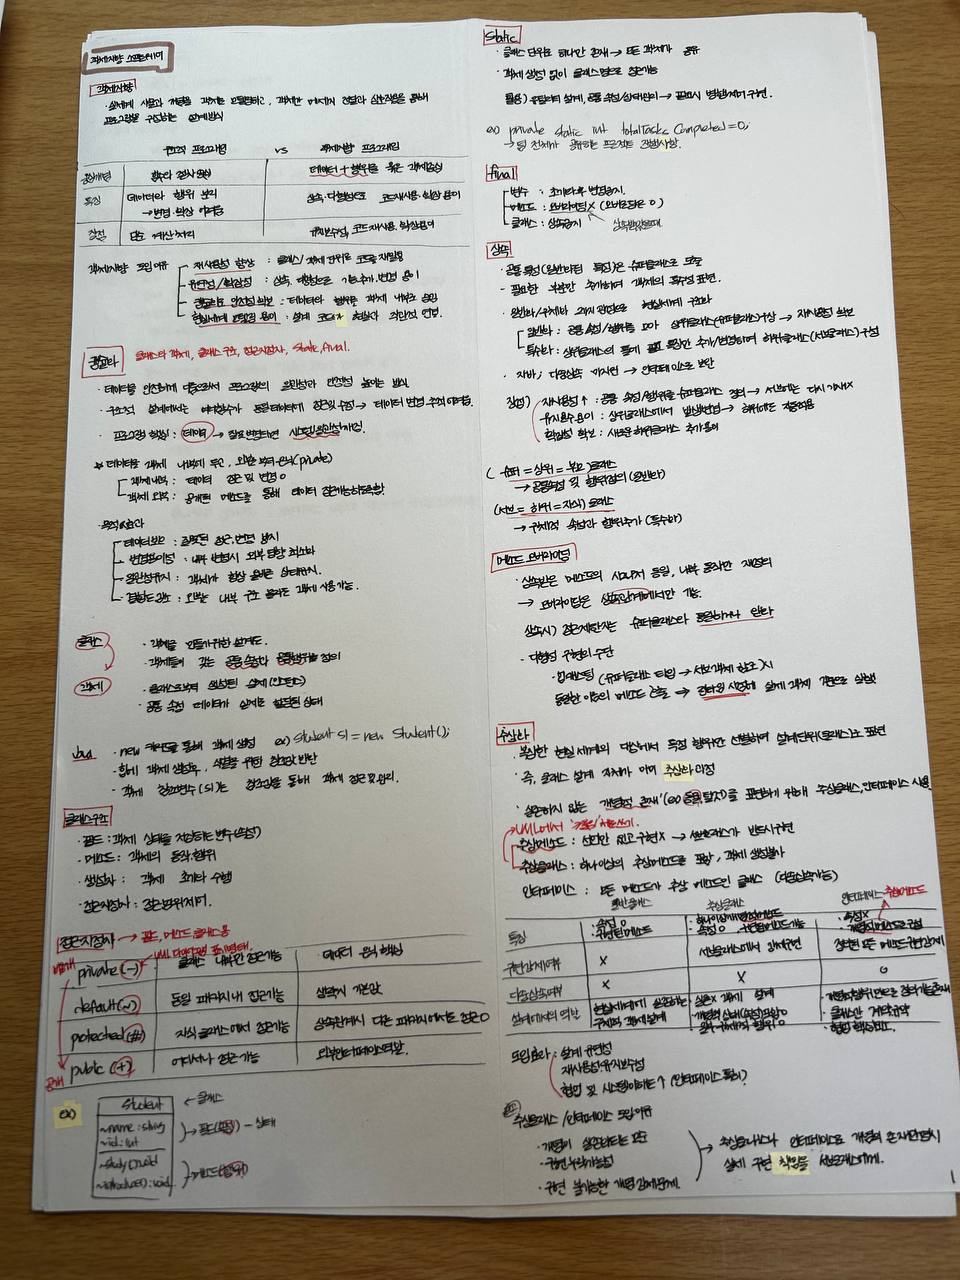 객체지향 소프트웨어
객체지향
· 실세계 사물과 개념을 객체로 모델링하고, 객체간 메시지 전달과 상호작용을 통해
프로그램을 구성하는 설계방식
구조적 프로그래밍 vs 객체지향 프로그래밍
함수와 절차 중심 데이터 + 행위를 묶은 객체중심
특징 데이터와 행위 분리 상속·다형성으로 코드재사용·확장 용이
→ 변경·확장 어려움
장점 단순 계산/처리 유지보수성, 코드재사용, 확장용이
객체지향 도입이유
재사용성 향상 : 클래스/객체 단위로 코드를 재활용
유연성/확장성 : 상속, 다형성으로 기능추가·변경 용이
캡슐화로 안전성 확보 : 데이터와 행위를 객체 내부로
현실세계 모델링 용이 : 설계 코드가 현실과 직관적 연결.
캡슐화 클래스와 객체, 클래스 구조, 접근지정자, static, final.
· 데이터를 안전하게 다룸으로써 프로그램의 안정성 높이는 방식
· 구조적 설계에서는 여러함수가 동일데이터에 접근 및 수정 → 데이터 변경 추적 어려움.
· 프로그램 핵심 : 데이터 → 잘못 변경되면
☆ 데이터를 객체 내부에 두고, 외부로부터 은닉(private)
객체내부 : 데이터 접근 및 변경 O
객체 외부 : 공개된 메소드를 통해 데이터 접근가능하도록함.
· 목적&효과
데이터보호 : 잘못된 접근·변경 방지
변경용이성 : 내부 변경시 외부 영향 최소화
일관성유지 : 객체가 항상 올바른 상태유지.
결합도감소 : 외부는 내부 구조 몰라도 객체 사용 가능.
클래스 · 객체를 만들기위한 설계도.
· 객체들이 갖는 공통 속성과 공통행위를 정의
객체 · 클래스로부터 생성된 실체(인스턴스)
· 공통 속성 데이터가 실제로 할당된 상태
· new 키워드를 통해 객체 생성 ex) Student s1 = new Student();
· 힙에 객체 생성후, 식별을 위한 참조값 반환
· 객체 참조변수(s1)는 참조값을 통해 객체 접근 및 관리.
클래스구조
· 필드 : 객체 상태를 저장하는 변수(속성)
· 메소드 : 객체의 동작·행위
· 생성자 : 객체 초기화 수행
· 접근지정자 : 접근범위 제어.
접근지정자 → 필드, 메소드, 클래스용
UML 다이어그램 표기형태.
private (-) 클래스 내부만 접근가능 데이터 은닉 핵심
default(~) 동일 패키지내 접근가능 생략시 기본값
protected(#) 자식 클래스에서 접근가능 상속관계시 다른 패키지에서도 접근 O
public (+) 어디서나 접근 가능 외부인터페이스역할.
ex) Student ← 클래스
~name : string
~id : int
→ 필드(속성) - 상태
~study() : void
~introduce() : void
→ 메소드(행위)
static
· 클래스 단위로 하나만 존재 → 모든 객체가 공유
· 객체 생성 없이 클래스명으로 접근가능
활용) 유틸리티 설계, 공통 속성/상태관리 → 필요시 병행제어 구현.
ex) private static int totalTasks Completed = 0;
→ 팀 전체가 공유하는 프로젝트 진행사항.
final
변수 : 초기화후 변경금지.
메소드 : 오버라이딩 X (오버로딩은 O)
클래스 : 상속금지
상속받았을때
상속
· 공통 특성(일반화된 특성)은 슈퍼클래스로 모음
· 필요한 부분만 추가하여 객체의 특수성 표현.
일반화 : 공통 속성/행위를 모아 상위클래스(슈퍼클래스)구성 → 재사용성 확보
특수화 : 상위클래스의 틀에 필요 특징만 추가/변경하여 하위클래스(서브클래스) 구성
· 자바 ; 다중상속 미지원 → 인터페이스로 보완
장점) 재사용성↑ : 공통 속성/행위를 슈퍼클래스 정의 → 서브에는 다시 기재X
유지보수용이 : 상위클래스에서 변경 → 하위에도 적용
확장성 확보 : 새로운 하위클래스 추가용이
( 슈퍼 = 상위 = 부모 ) 클래스
→ 공통속성 및 행위정의 (일반화)
(서브 = 하위 = 자식) 클래스
→ 구체적 속성과 행위추가 (특수화)
메소드 오버라이딩
· 상속받은 메소드의 시그니처 동일, 내부 동작만 재정의
→ 오버라이딩은 상속관계에서만 가능.
상속시) 접근제한자는 슈퍼클래스와 동일하거나 완화
· 다형성 구현의 수단
· 업캐스팅 (슈퍼클래스 타입 → 서브객체 참조) 시
동일한 이름의 메소드 호출 → 런타임 시점에 실제 객체 기준으로 실행
추상화
· 복잡한 현실 세계의 대상에서 특정 행위만 선별하여 설계단위(클래스)로 표현
· 즉, 클래스 설계 자체가 이미 추상화 과정
· '실존하지 않는 개념적 존재' (ex 동물, 탈것)를 표현하기 위해 추상클래스, 인터페이스 사용
UML에서
추상메소드 : 선언만 있고 구현X → 서브클래스가 반드시구현
추상클래스 : 하나이상의 추상메소드를 포함, 객체 생성불가
인터페이스 : 모든 메소드가 추상 메소드인 클래스 (다중상속가능)
일반클래스 추상클래스 인터페이스
특징 · 속성 O · 구현된메소드 · 하나이상의 추상메소드 · 속성 O, 구현된메소드가능 · 속성X
구현강제여부 X 서브클래스에서 강제구현 정의된 모든 메소드 구현강제
다중상속여부 X X O
설계에서의 역할 현실세계에 실존하는 구체적 객체설계
도입효과 : 설계 유연성
재사용성·유지보수성
협업 및 시스템이해도↑ (인터페이스 특히)
추상클래스 / 인터페이스 도입이유
· 구현누락가능성
· 구현 불가능한 개념 강제문제.
→ 추상클래스나 인터페이스로 개념의 존재만 명시
실제 구현 책임을 서브클래스에게.
1